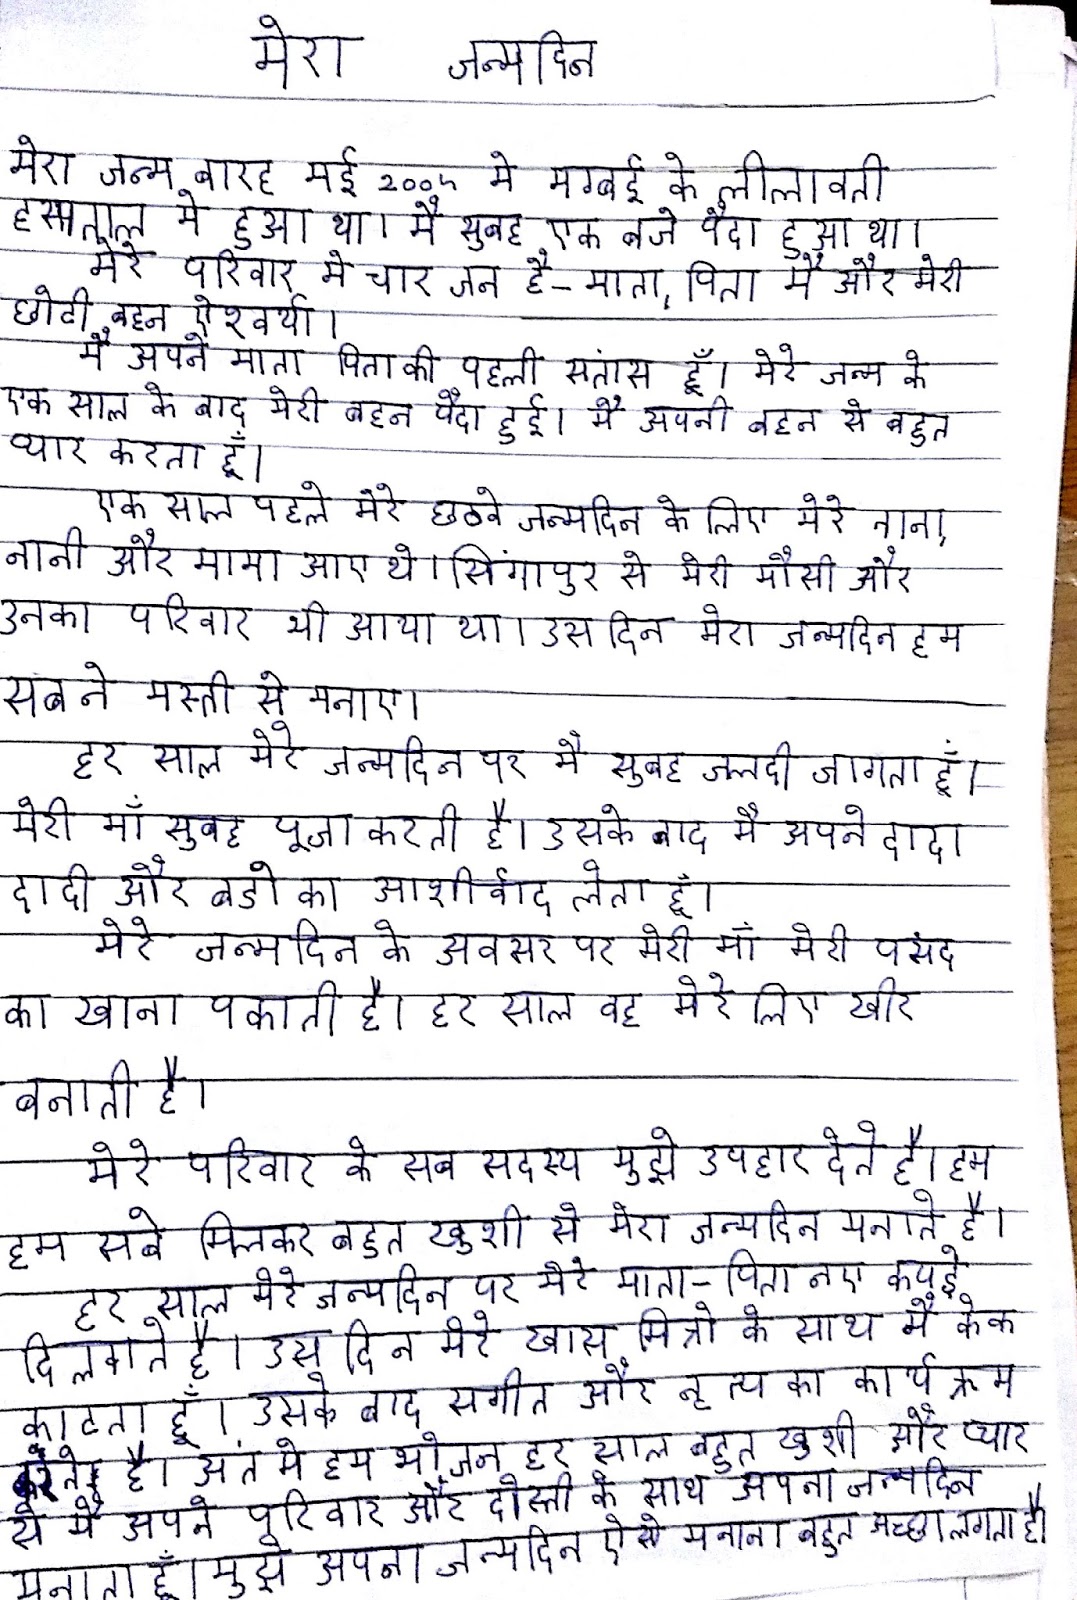 मेरा जन्मदिन
मेरा जन्म बारह मई 2005 मे मम्बई के लीलावती
हस्पताल मे हुआ था। मै सुबह एक बजे पैदा हुआ था।
मेरे परिवार मे चार जन है - माता, पिता मै और मेरी
छोटी बहन ऐश्वर्या।
मै अपने माता पिता की पहली संतास हूँ। मेरे जन्म के
एक साल के बाद मेरी बहन पैदा हुई। मै अपनी बहन से बहुत
प्यार करता हूँ।
एक साल पहले मेरे छठवे जन्मदिन के लिए मेरे नाना,
नानी और मामा आए थे। सिंगापुर से मेरी मौसी और
उनका परिवार भी आया था। उस दिन मेरा जन्मदिन हम
सब ने मस्ती से मनाए।
हर साल मेरे जन्मदिन पर मै सुबह जलदी जागता हूँ।
मेरी माँ सुबह पूजा करती है। उसके बाद मै अपने दादा
दादी और बडो का आशीर्वाद लेता हूँ।
मेरे जन्मदिन के अवसर पर मेरी माँ मेरी पसंद
का खाना पकाती है। हर साल वह मेरे लिए खीर
बनाती है।
मेरे परिवार के सब सदस्य मुझे उपहार देते है। हम
हम सबे मिलकर बहुत खुशी से मेरा जन्मदिन मनाते है।
हर साल मेरे जन्मदिन पर मेरे माता - पिता नए कपड़े
दिलवाते है। उस दिन मेरे खास मित्रो के साथ मै केक
काटता हूँ। उसके बाद सगीत और नृत्य का कार्यक्रम
करते है। अंत मे हम भोजन हर साल बहुत खुशी और प्यार
से मै अपने परिवार और दोस्ती के साथ अपना जन्मदिन
मनाता हूँ। मुझे अपना जन्मदिन ऐसे मनाना बहुत अच्छा लगता है।